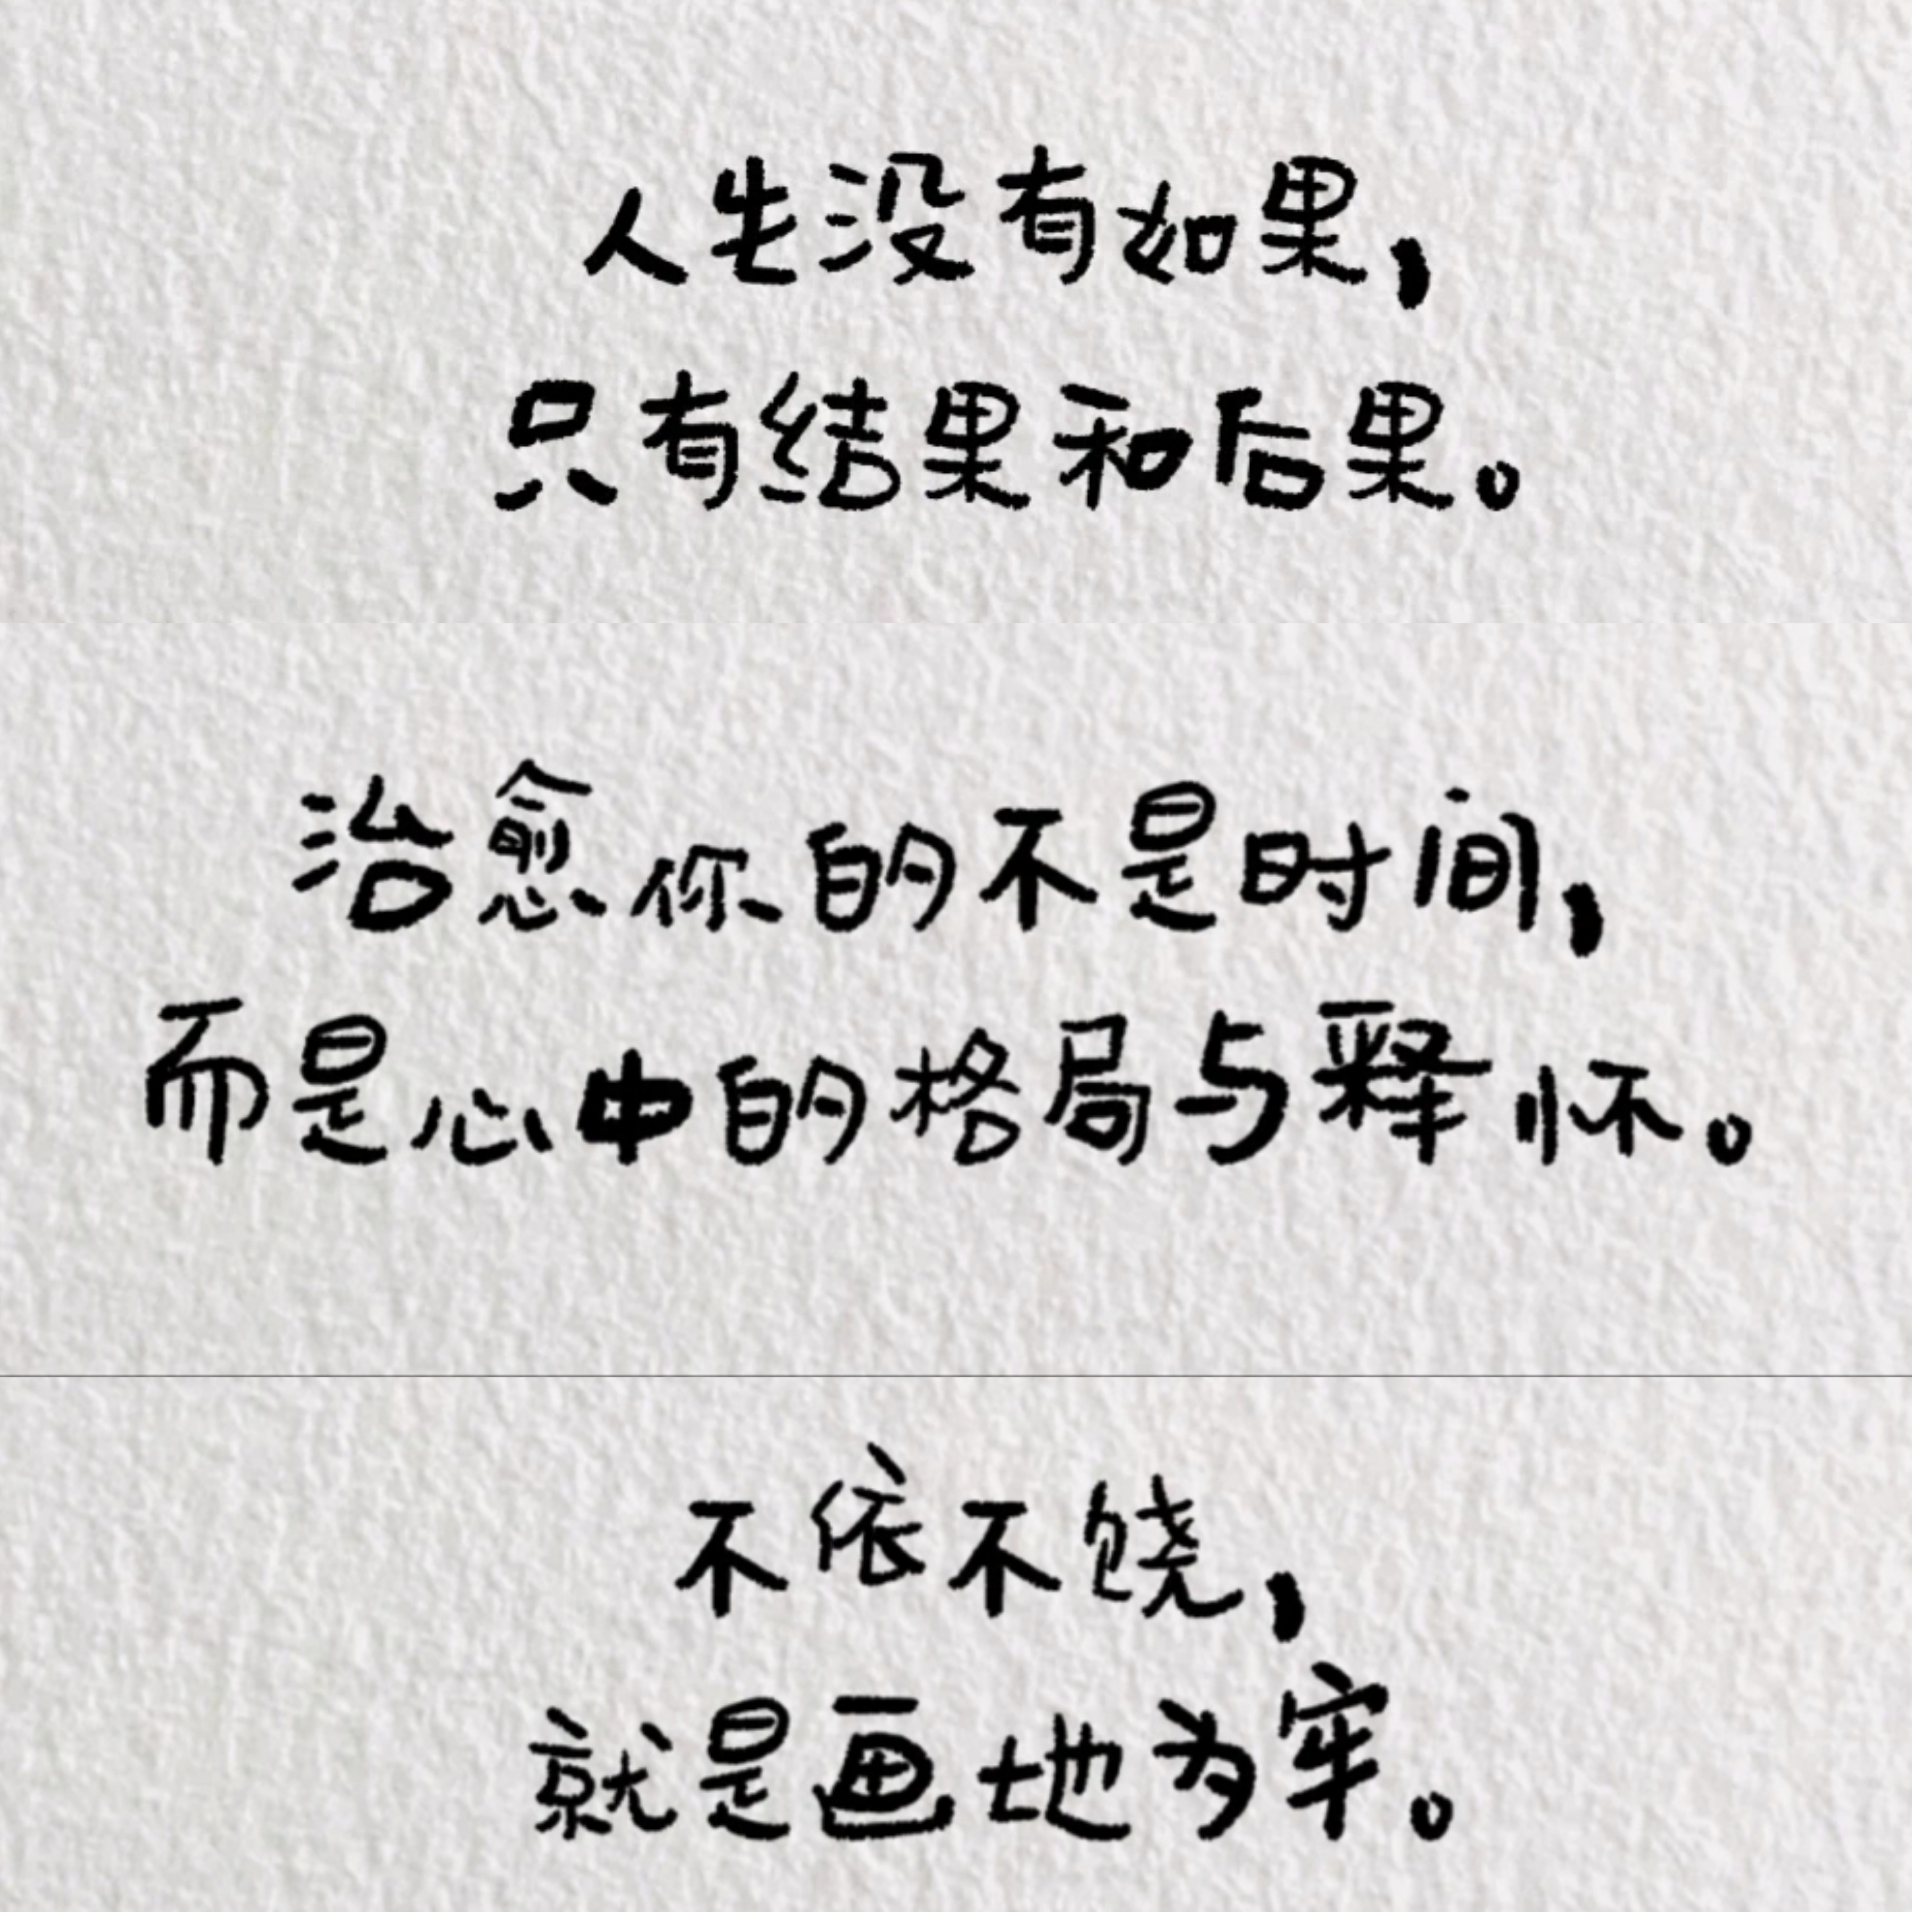 人生没有如果，
只有结果和后果。
治愈你的不是时间，
而是心中的格局与释怀。
不依不饶，
就是画地为牢。